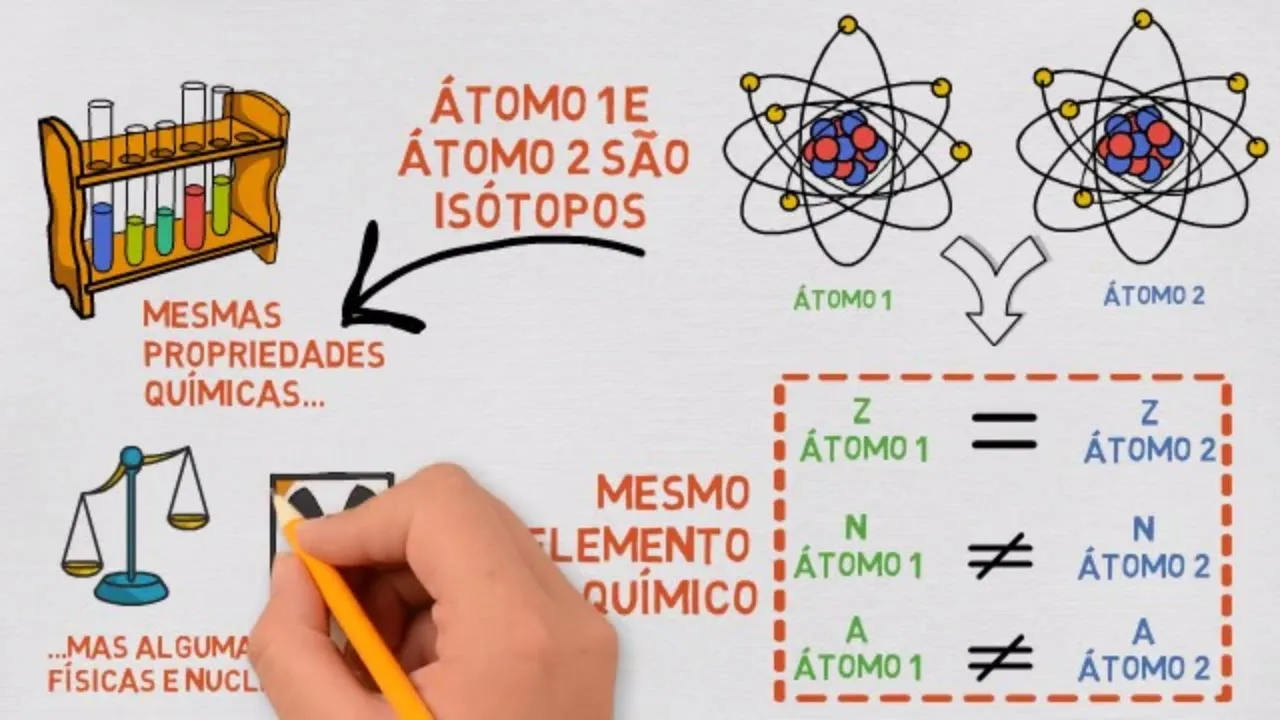 ÁTOMO 1 E
ÁTOMO 2 SÃO
ISÓTOPOS
ÁTOMO 1
ÁTOMO 2
MESMAS
PROPRIEDADES
QUÍMICAS...
...MAS
FÍSICAS E
MESMO
ELEMENTO
QUÍMICO
Z
ÁTOMO 1
=
Z
ÁTOMO 2
N
ÁTOMO 1
≠
N
ÁTOMO 2
A
ÁTOMO 1
≠
A
ÁTOMO 2